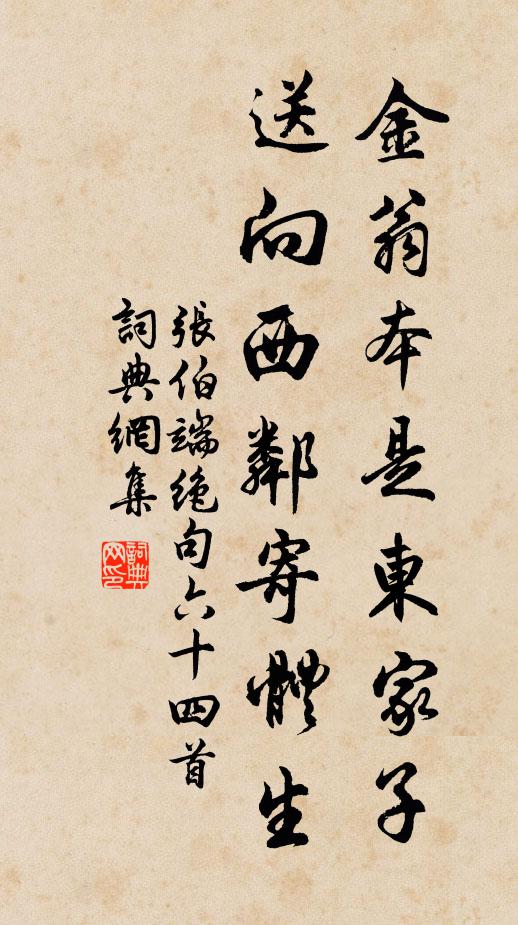 金翁本是東家子
送向西鄰寄體生
張伯端絶句六十四首
詞典網集
詞典
网印